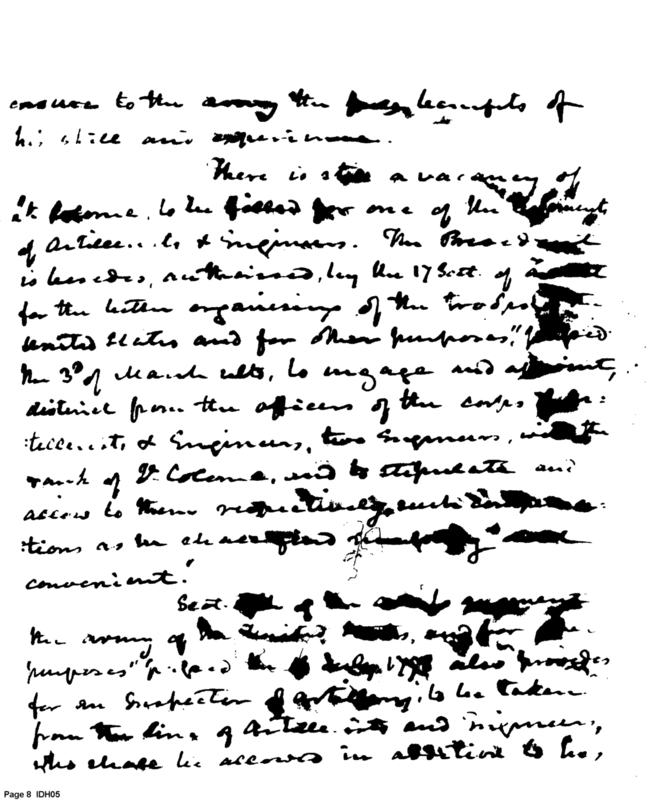 ensure to the army the benefits of
his skill and experience.
There is still a vacancy of
Lt Colonel, to be filled for one of the Regiments
of Artillerists & Engineers. The President
is besides, authorised, by the 17 Sect. of
for the better organising of the troops
United States and for other purposes," passed
the 3d of March ulto, to engage and appoint,
distinct from the officers of the corps
:tillerists, & Engineers, two Engineers, with the
rank of Lt Colonel, and to stipulate and
allow to them respectively, such compensa:
:tions as he shall find
convenient."
Sect. of the
the army of the United States, and for other
purposes" passed the July 1798 also provides
for an Inspector of Artillery, to be taken
from the line of Artillerists and Engineers,
who shall be allowed in addition to his,
Page 8 IDH05